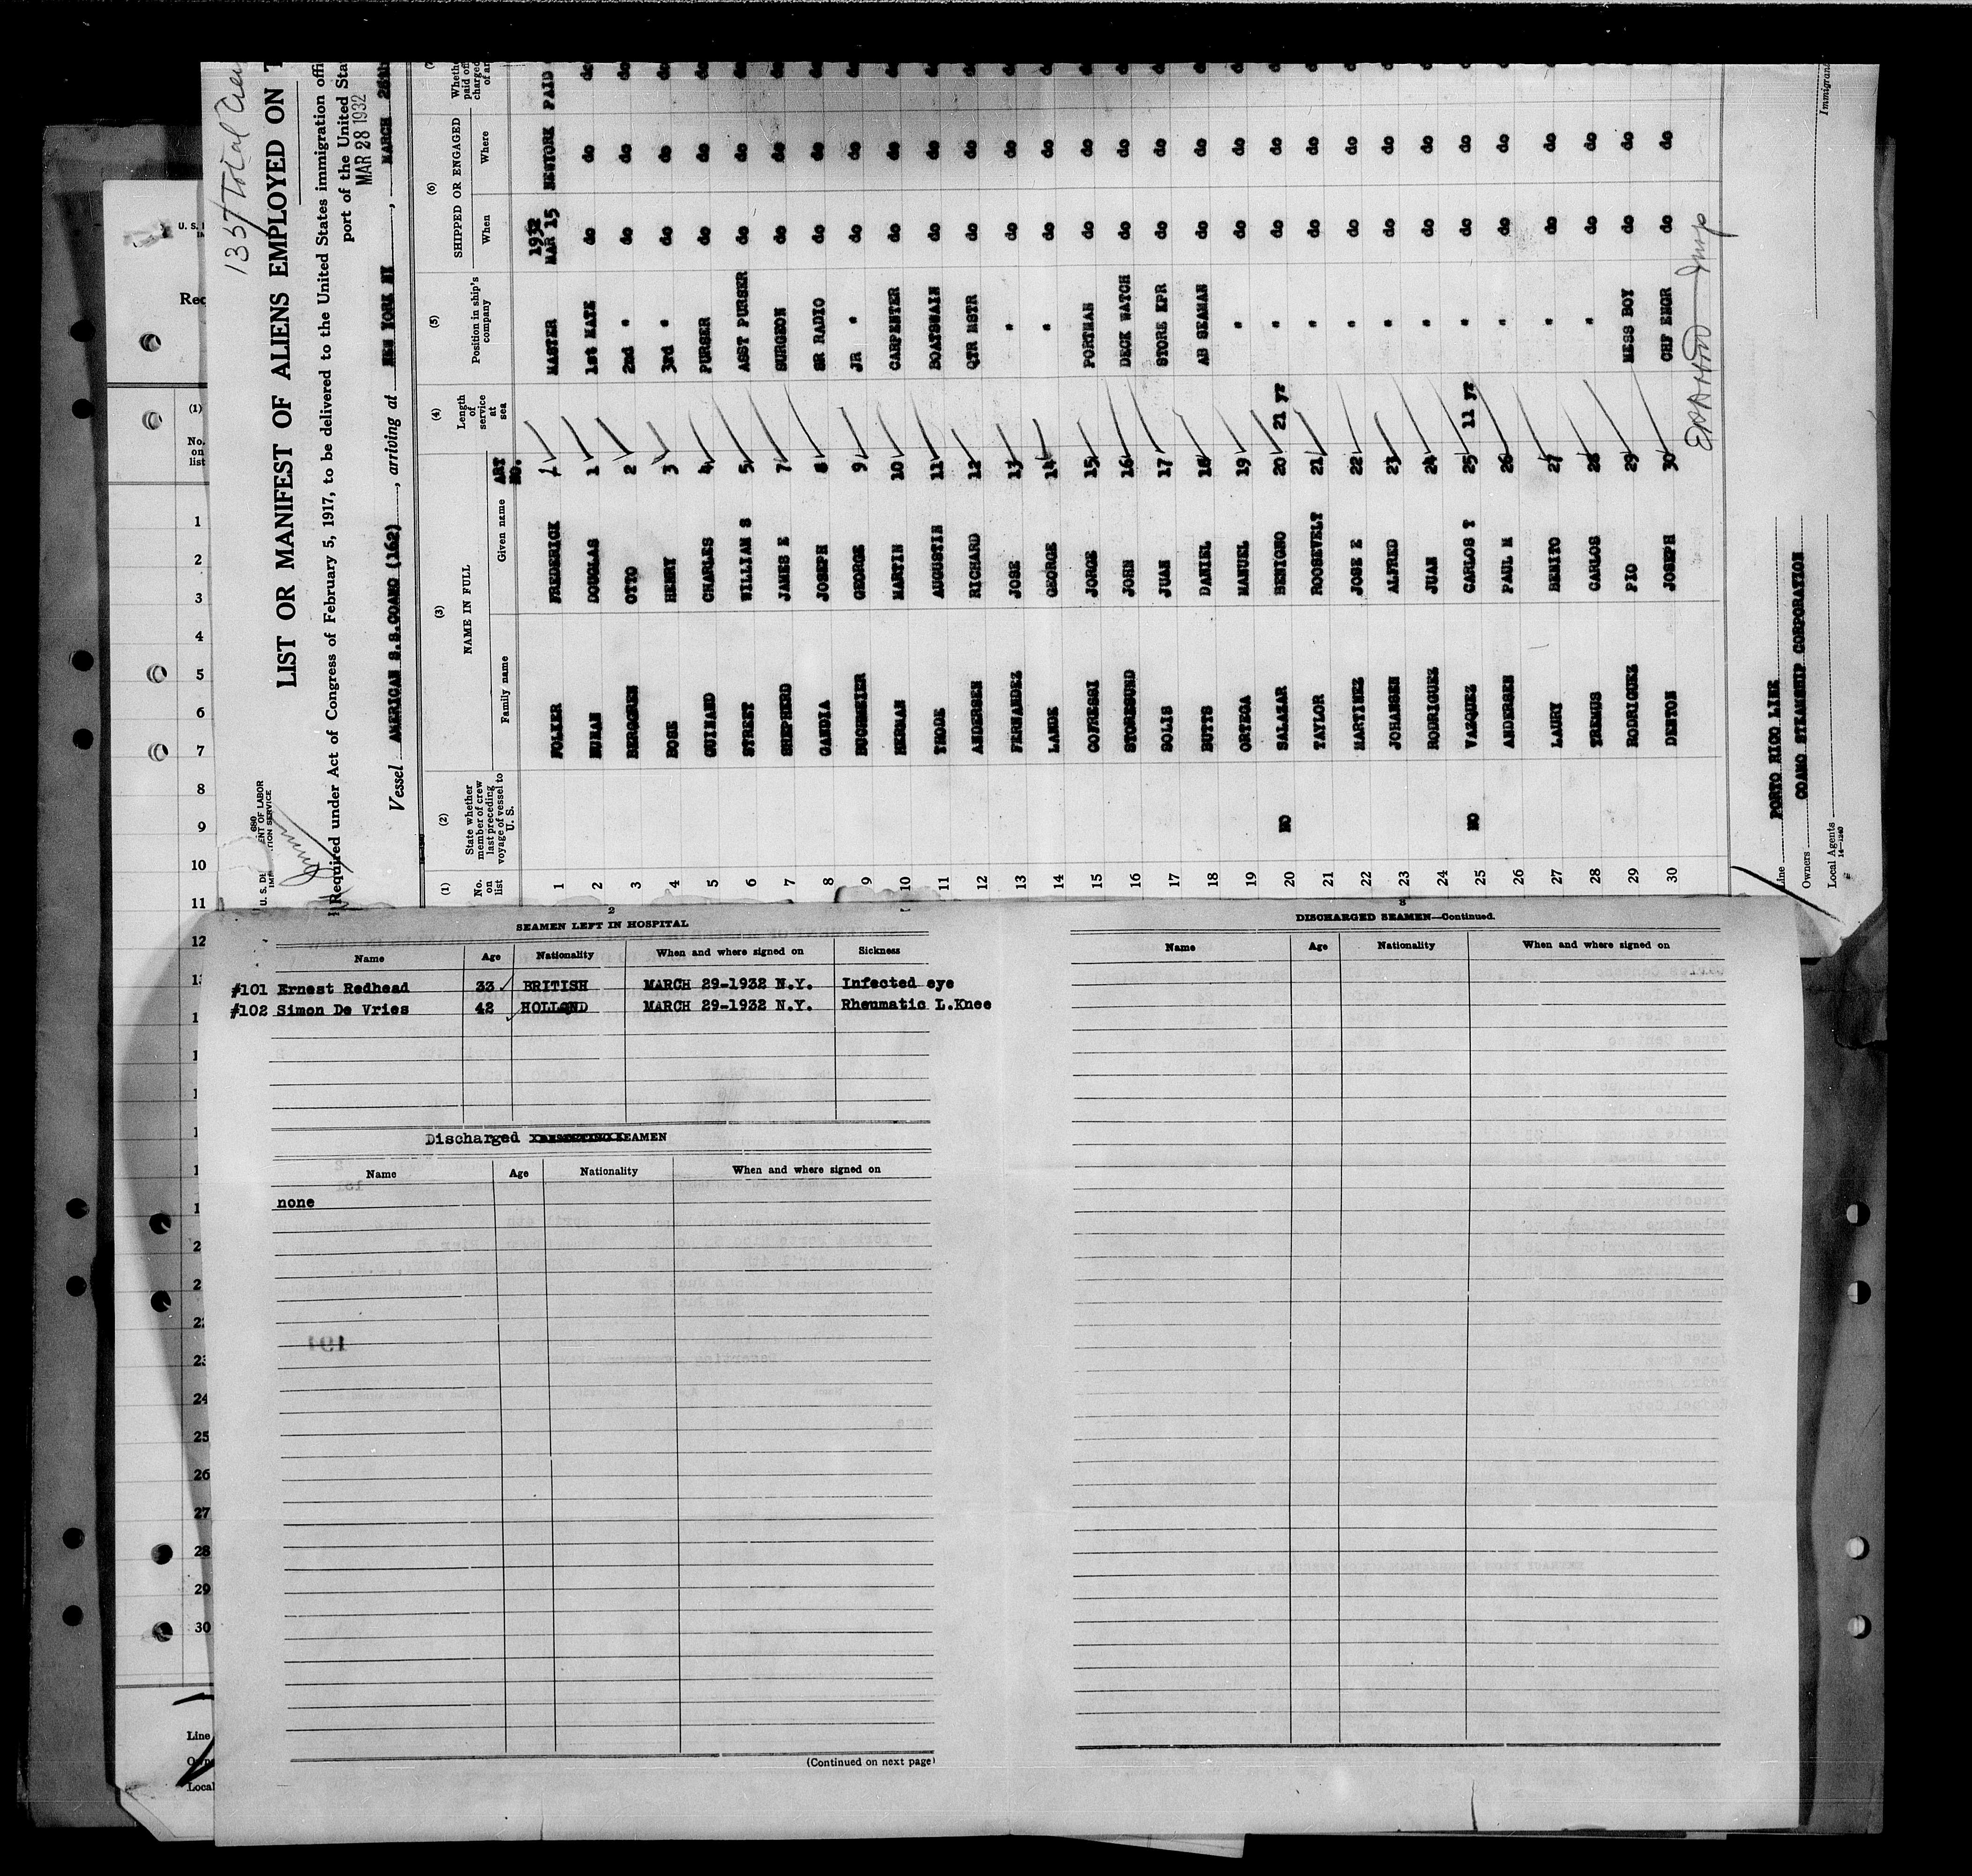 135 Total Crew
LIST OR MANIFEST OF ALIENS EMPLOYED ON T
Required under Act of Congress of February 5, 1917, to be delivered to the United States immigration offi
port of the United Sta
MAR 28 1932
Vessel AMERICAN S.S.COAMO (162), arriving at NEW YORK NY, MARCH 28th
680
U. S. DE ENT OF LABOR
IMM TION SERVICE
(1) (2) (3) (4) (5) (6) (7)
No. on list
State whether member of crew last preceding voyage of vessel to U. S.
NAME IN FULL
Family name Given name
ART NO.
Length of service at sea
Position in ship's company
SHIPPED OR ENGAGED
When Where
Wheth paid off charged of ar
1932
1 FOLIER FREDERICK 1 MASTER MAR 15 NEYORK PAID
2 DOUGLAS 1 1st MATE do do do
3 BERGGREN OTTO 2 2nd " do do do
4 BOSE HENRY 3 3rd " do do do
5 GUINAND CHARLES 4 PURSER do do do
6 STREET WILLIAM S 5 ASST PURSER do do do
7 SHEPHERD JAMES E 7 SURGEON do do do
8 GANDIA JOSEPH 8 SR RADIO do do do
9 BUCHMEIER GEORGE 9 JR " do do do
10 HERMAN MARTIN 10 CARPENTER do do do
11 THODE AUGUSTIN 11 BOATSWAIN do do do
12 ANDERSEN RICHARD 12 QTR MSTR do do do
13 FERNANDEZ JOSE 13 " do do do
14 LANDE GEORGE 14 " do do do
15 COVRESSI JORGE 15 PORTMAN do do do
16 STORESUND JOHN 16 DECK WATCH do do do
17 SOLIS JUAN 17 STORE KPR do do do
18 BUTTS DANIEL 18 AB SEAMAN do do do
19 ORTEGA MANUEL 19 " do do do
20 NO SALAZAR BENIGNO 20 21 yr " do do do
21 TAYLOR ROOSEVELT 21 " do do do
22 MARTINEZ JOSE E 22 " do do do
23 JOHANSEN ALFRED 23 " do do do
24 RODRIGUEZ JUAN 24 " do do do
25 NO VAZQUEZ CARLOS T 25 11 yr " do do do
26 ANDERSEN PAUL M 26 " do do do
27 LAURY BENITO 27 " do do do
28 TREMUS CARLOS 28 " do do do
29 RODRIGUEZ PIO 29 MESS BOY do do do
30 DENTON JOSEPH 30 CHF ENGR do do do
Line PORTO RICO LINE
Owners COAMO STEAMSHIP CORPORATION
Local Agents
Immigrant
U. S. I
Rec
(1)
No. on list
1
2
3
4
5
6
7
8
9
10
11
12
22
23
24
25
26
27
28
29
30
Line
Owne
Local
2
SEAMEN LEFT IN HOSPITAL
Name Age Nationality When and where signed on Sickness
#101 Ernest Redhead 33 BRITISH MARCH 29-1932 N.Y. Infected eye
#102 Simon De Vries 42 HOLLAND MARCH 29-1932 N.Y. Rheumatic L.Knee
Discharged SEAMEN
Name Age Nationality When and where signed on
none
(Continued on next page)
3
DISCHARGED SEAMEN—Continued.
Name Age Nationality When and where signed on